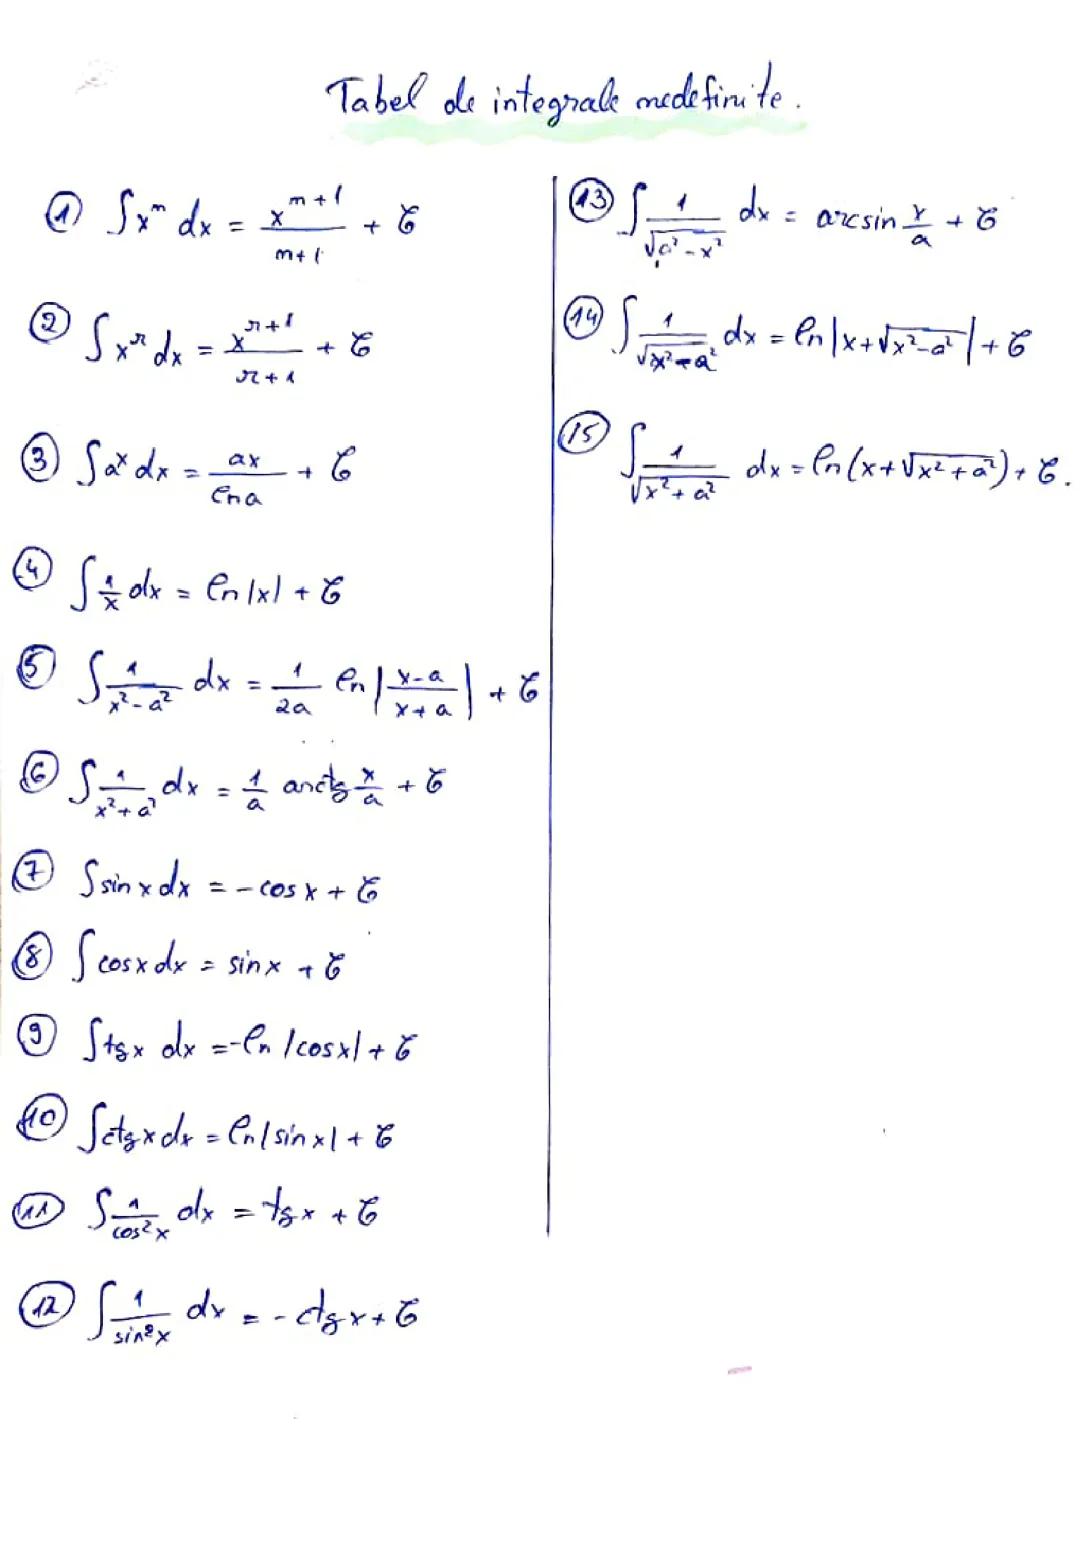 Tabel de integrale nedefinite.
① ∫xⁿ dx = x^(n+1)/(n+1) + C
② ∫x^r dx = x^(r+1)/(r+1) + C
③ ∫a^x dx = ax/ln a + C
④ ∫1/x dx = ln|x| + C
⑤ ∫1/(x²-a²) dx = 1/2a ln|(x-a)/(x+a)| + C
⑥ ∫1/(x²+a²) dx = 1/a arctg x/a + C
⑦ ∫sin x dx = -cos x + C
⑧ ∫cos x dx = sin x + C
⑨ ∫tg x dx = -ln|cos x| + C
⑩ ∫ctg x dx = ln|sin x| + C
⑪ ∫1/cos²x dx = tg x + C
⑫ ∫1/sin²x dx = -ctg x + C
⑬ ∫1/√(a²-x²) dx = arcsin x/a + C
⑭ ∫1/√(x²-a²) dx = ln|x+√(x²-a²)| + C
⑮ ∫1/√(x²+a²) dx = ln(x+√(x²+a²)) + C.